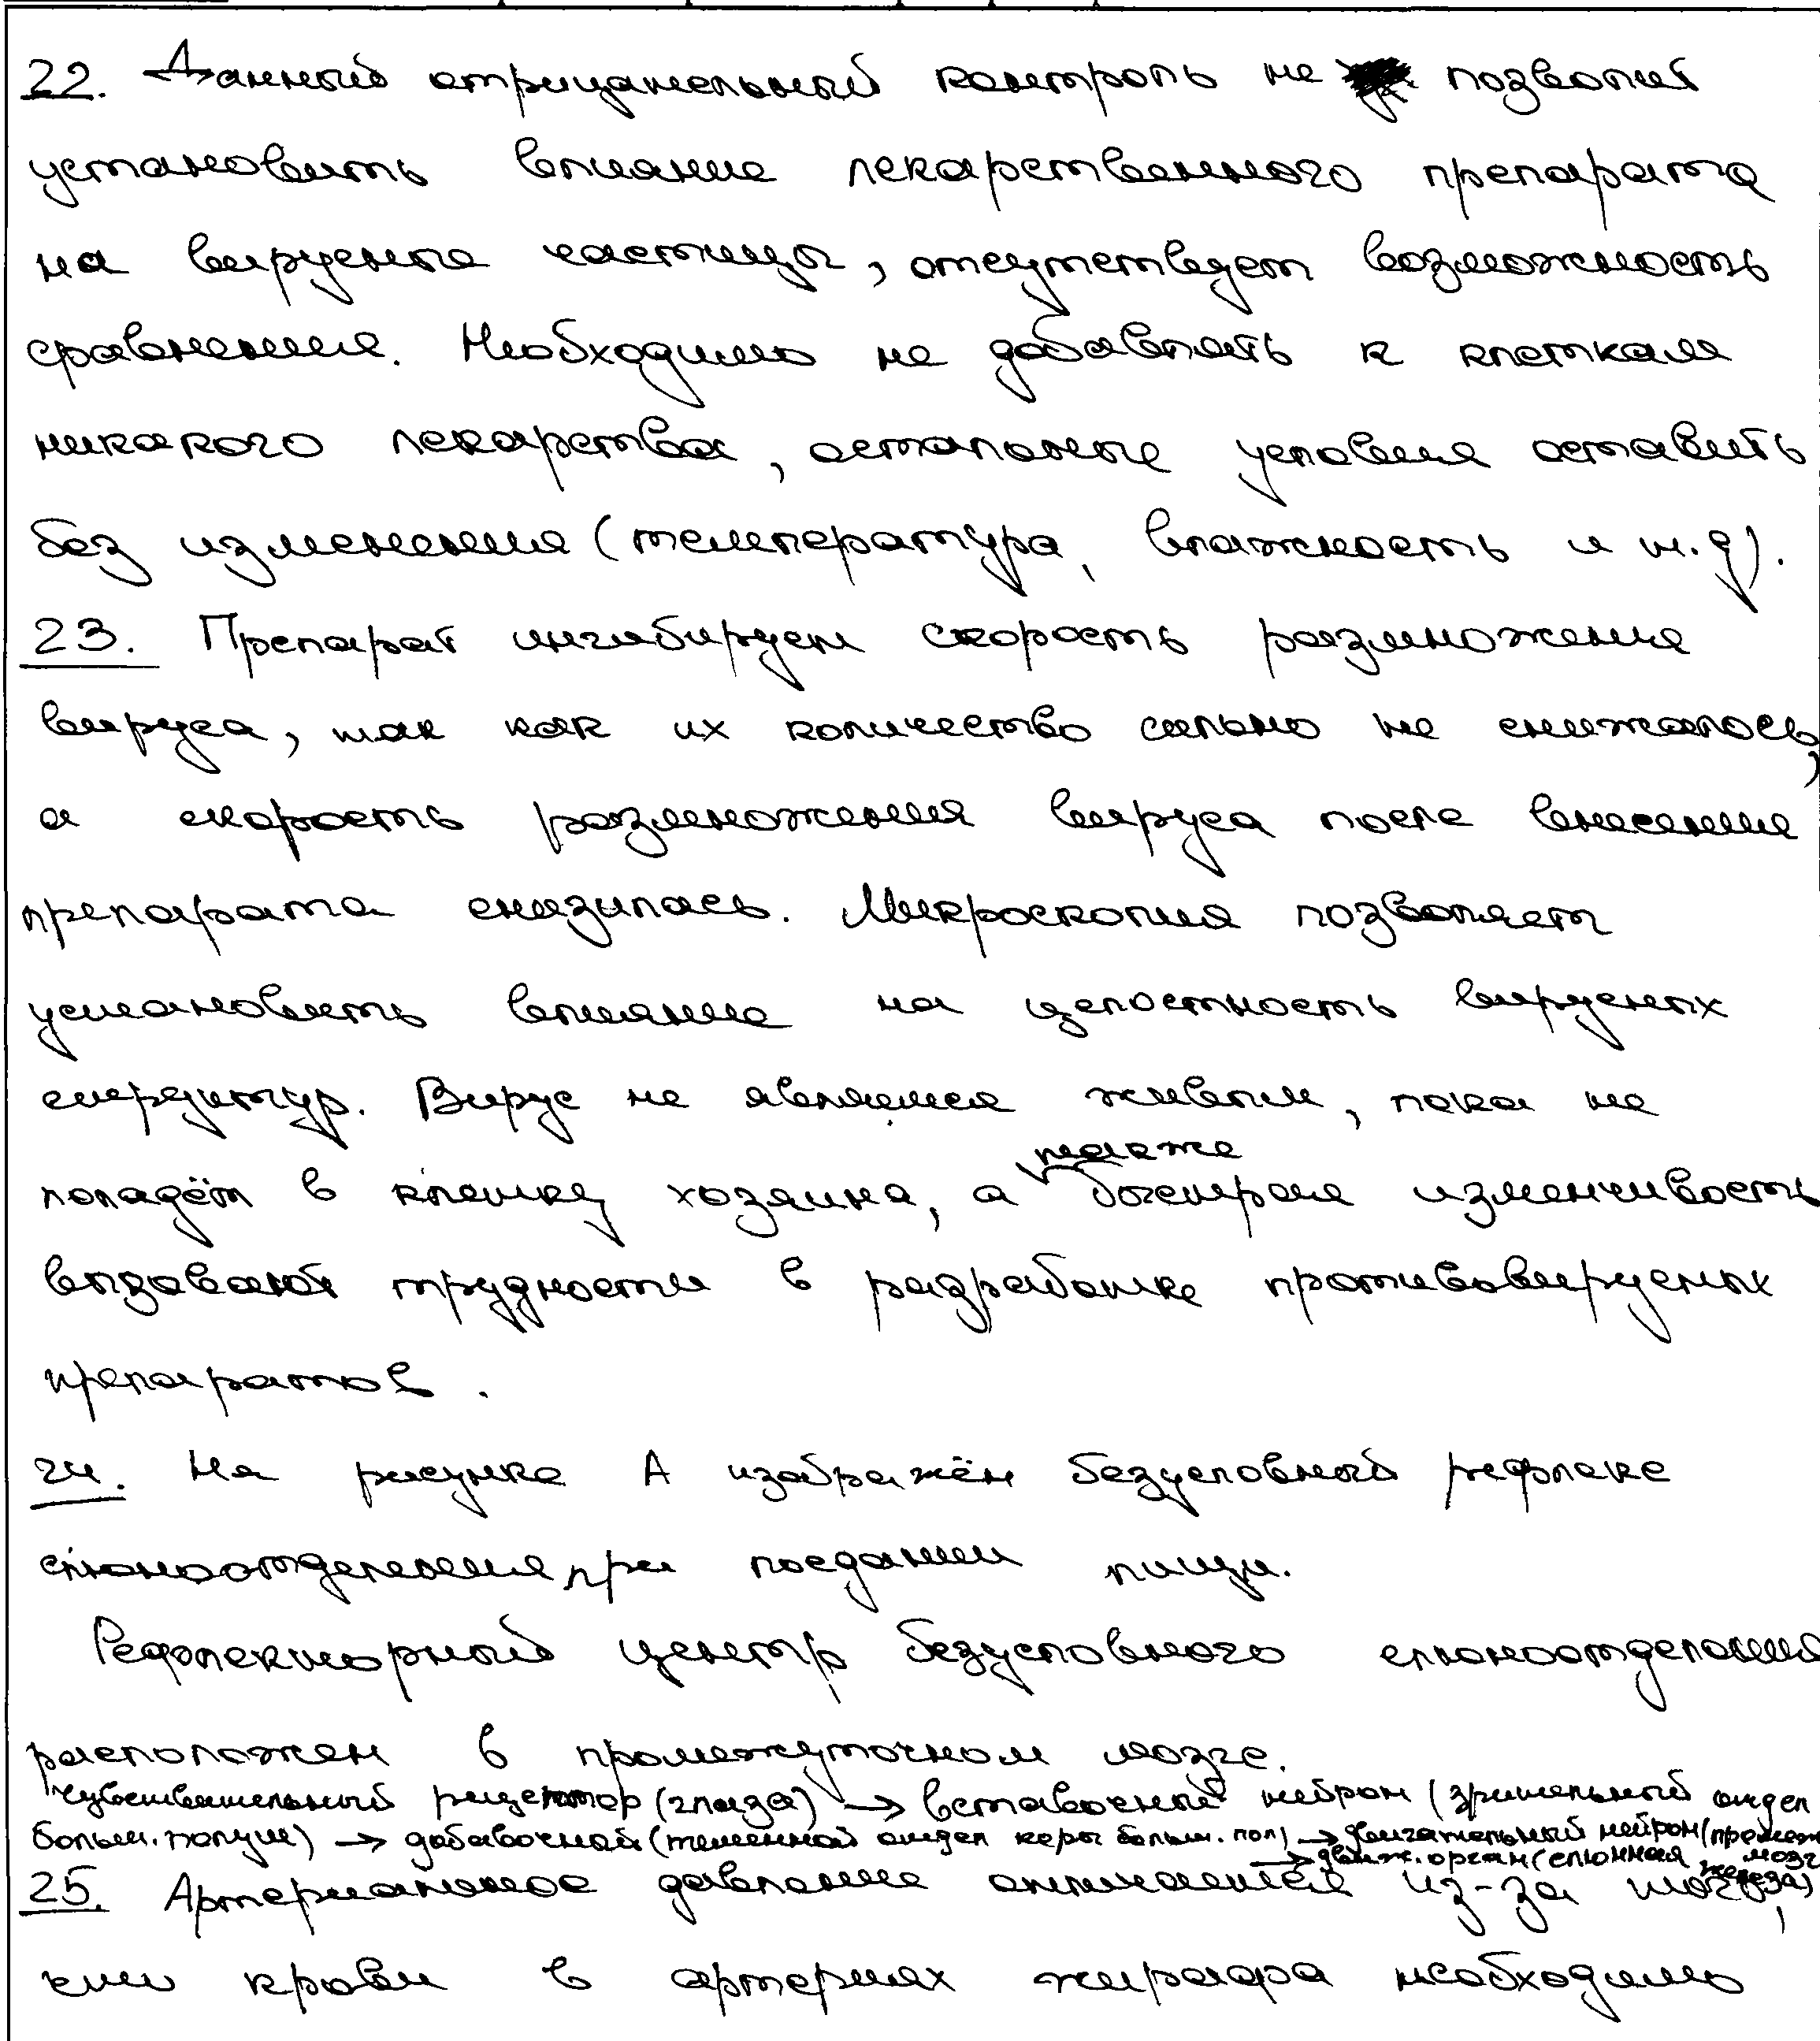 22. Данный отрицательный контроль не позволит
установить влияние лекарственного препарата
на вирусные частицы, отсутствует возможность
сравнения. Необходимо не добавлять к клеткам
никакого лекарства, остальные условия оставить
без изменения (температура, влажность и т.д).
23. Препарат ингибирует скорость размножения
вируса, так как их количество сильно не снижалось,
а скорость размножения вируса после внесения
препарата снизилась. Микроскопия позволяет
установить влияние на целостность вирусных
структур. Вирус не является живым, пока не
попадёт в клетку хозяина, а также быстрая изменчивость
вызывают трудности в разработке противовирусных
препаратов.
24. На рисунке А изображён безусловный рефлекс
слюноотделения при поедании пищи.
Рефлекторный центр безусловного слюноотделения
расположен в промежуточном мозге.
Чувствительный рецептор (глаза) → вставочный нейрон (зрительный отдел
больш. полуш) → добавочной (теменной отдел коры больш. пол) → двигательный нейрон (промеж
мозг → движ. орган (слюнная железа)
25. Артериальное давление из-за того,
что крови в артериях жирафа необходимо